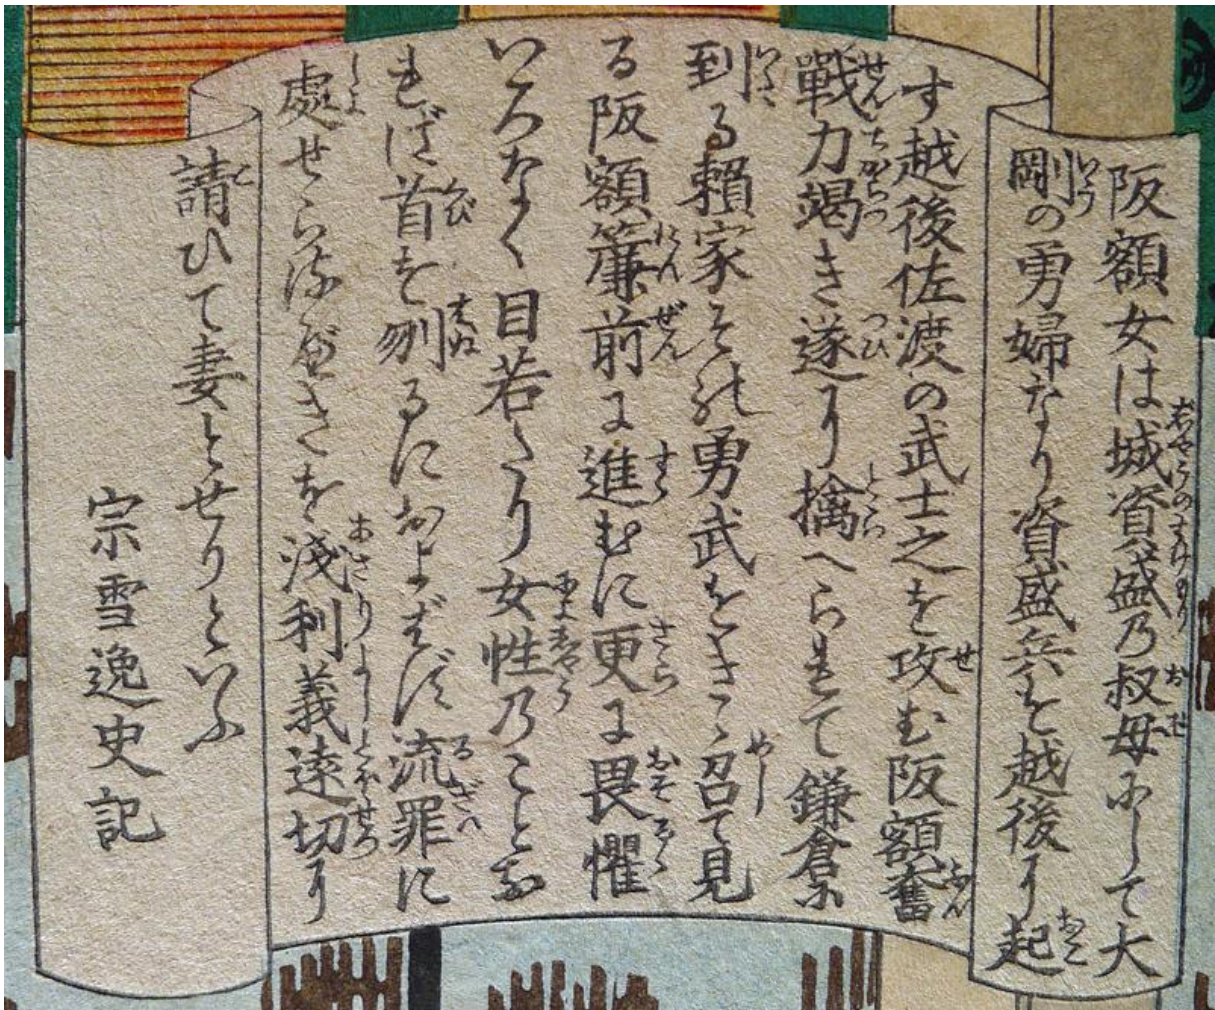 阪額女は城資盛乃叔母にして大
剛の勇婦なり資盛兵を越後に起
す越後佐渡の武士之を攻む阪額奮
戰力竭き遂に擒へられて鎌倉に
到る頼家その勇武をきゝ召て見
る阪額簾前に進むに更に畏懼
いろなく目若たり女性乃ことな
れば首を刎るにおよばず流罪に
處せらるべきを浅利義遠切に
請ひて妻とせりといふ
宗雪逸史記